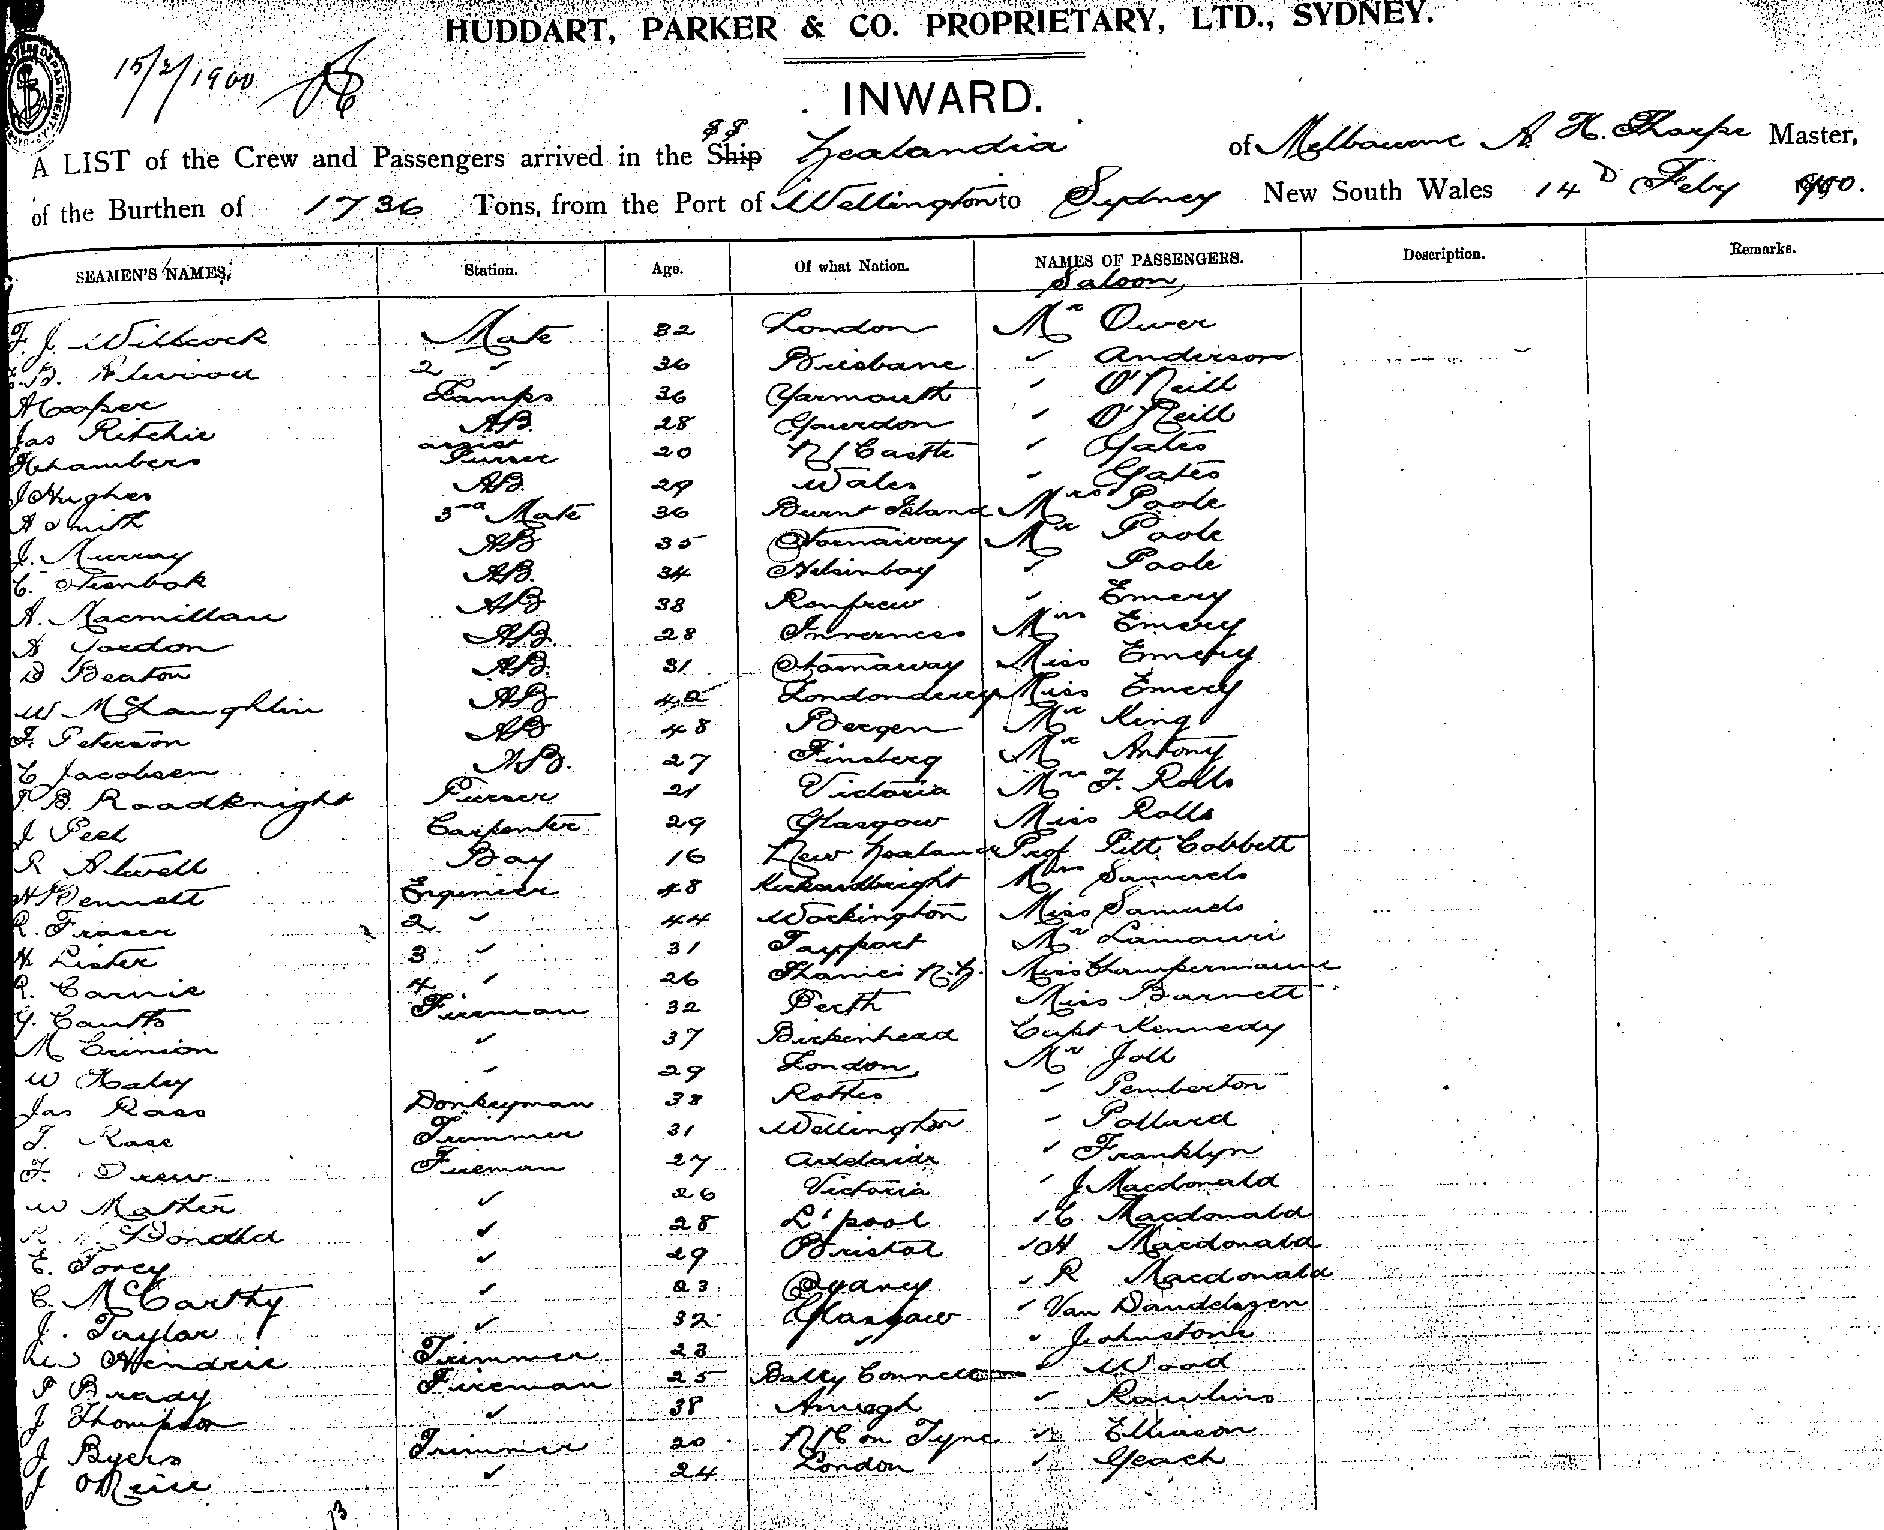 HUDDART, PARKER & CO. PROPRIETARY, LTD., SYDNEY.
15/2/1900
INWARD.
A LIST of the Crew and Passengers arrived in the SS Ship Zealandia of Melbourne A. H. Tharpe Master,
of the Burthen of 1736 Tons, from the Port of Wellington to Sydney New South Wales 14th Feby 1900.
SEAMEN'S NAMES, Station. Age. Of what Nation. NAMES OF PASSENGERS. Description. Remarks.
Saloon
F. J. Willcock Mate 32 London Mr Over
B. 2 " 36 Brisbane " Anderson
A Cooper Lamps 36 Yarmouth " O'Neill
Jas Ritchie AB. 28 Gourdon " O'Neill
Chambers assist Purser 20 N/Castle " Yates
J Hughes AB. 29 Wales " Yates
A Smith 3rd Mate 36 Burnt Island Mrs Poole
J. Murray AB 35 Stornaway Mr Poole
C. Stenbok AB. 34 " Poole
A. Macmillan AB 38 Renfrew " Emery
A Gordon AB. 28 Inverness Mrs Emery
D Beaton AB. 31 Stornaway Miss Emery
W McLaughlin AB 42 Londonderry Miss Emery
J. Peterson AB 48 Bergen Mr King
C Jacobsen AB. 27 Finsberg Mr Antony
P B. Roadknight Purser 21 Victoria Mrs F. Rolls
J Peel Carpenter 29 Glasgow Miss Rolls
R Atwell Boy 16 New Zealand Prof Pitt Cobbett
Bennett Engineer 48 Kirkcudbright Mrs Samuels
R. Fraser 2 " 44 Workington Miss Samuels
A Lister 3 " 31 Tayport Mr Lamouri
R. Carnie 4 " 26 Thames N.Z. Miss
G. Coutts Fireman 32 Perth Miss Barnett
M Crinion " 37 Birkenhead Capt Kennedy
W Haley " 29 London Mr Joll
Jas Ross Donkeyman 38 Rothes " Pemberton
T. Rose Trimmer 31 Wellington " Pollard
F. Drew Fireman 27 Adelaide " Franklyn
W Mather " 26 Victoria " J. Macdonald
R Dondld " 28 L'pool " C. Macdonald
E. Torey " 29 Bristol " H Macdonald
C. McCarthy " 23 Sydney " R Macdonald
J. Taylor " 32 Glasgow " Van Dandelszen
W Hendrie Trimmer 23 " " Johnstone
P Brady Fireman 25 Bally Connell " Wood
J Thompson " 38 Armagh " Rawlins
J Byers Trimmer 20 N/C on Tyne " Elliason
J O'Neill " 24 London " Geach